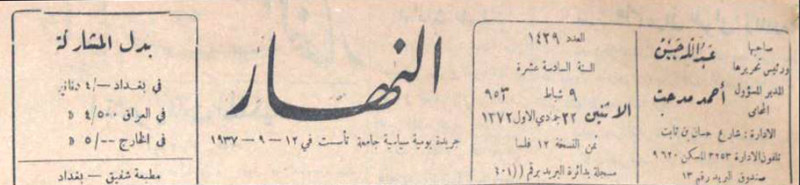 صاحبها
ورئيس تحريرها
عبد الله حسين
المدير المسؤول
المحامي
أحمد مدحت
الادارة : شارع حسان بن ثابت
تلفون الادارة ٣٢٥٣ المسكن ٩٦٢٠
صندوق البريد رقم ١٣
العدد ١٤٢٩
السنة السادسة عشرة
٩ شباط ٩٥٣
الاثنين ٢٢ جمادي الاول ١٣٧٢
ثمن النسخة ١٢ فلسا
مسجلة بدائرة البريد برقم ((٤٠١
النهار
جريدة يومية سياسية جامعة تأسست في ١٢ – ٩ – ١٩٣٧
بدل المشاركة
في بغداد -/٤ دنانير
في العراق ٤/٥٠٠ »
في الخارج ٥/٠٠ »
مطبعة شفيق – بغداد